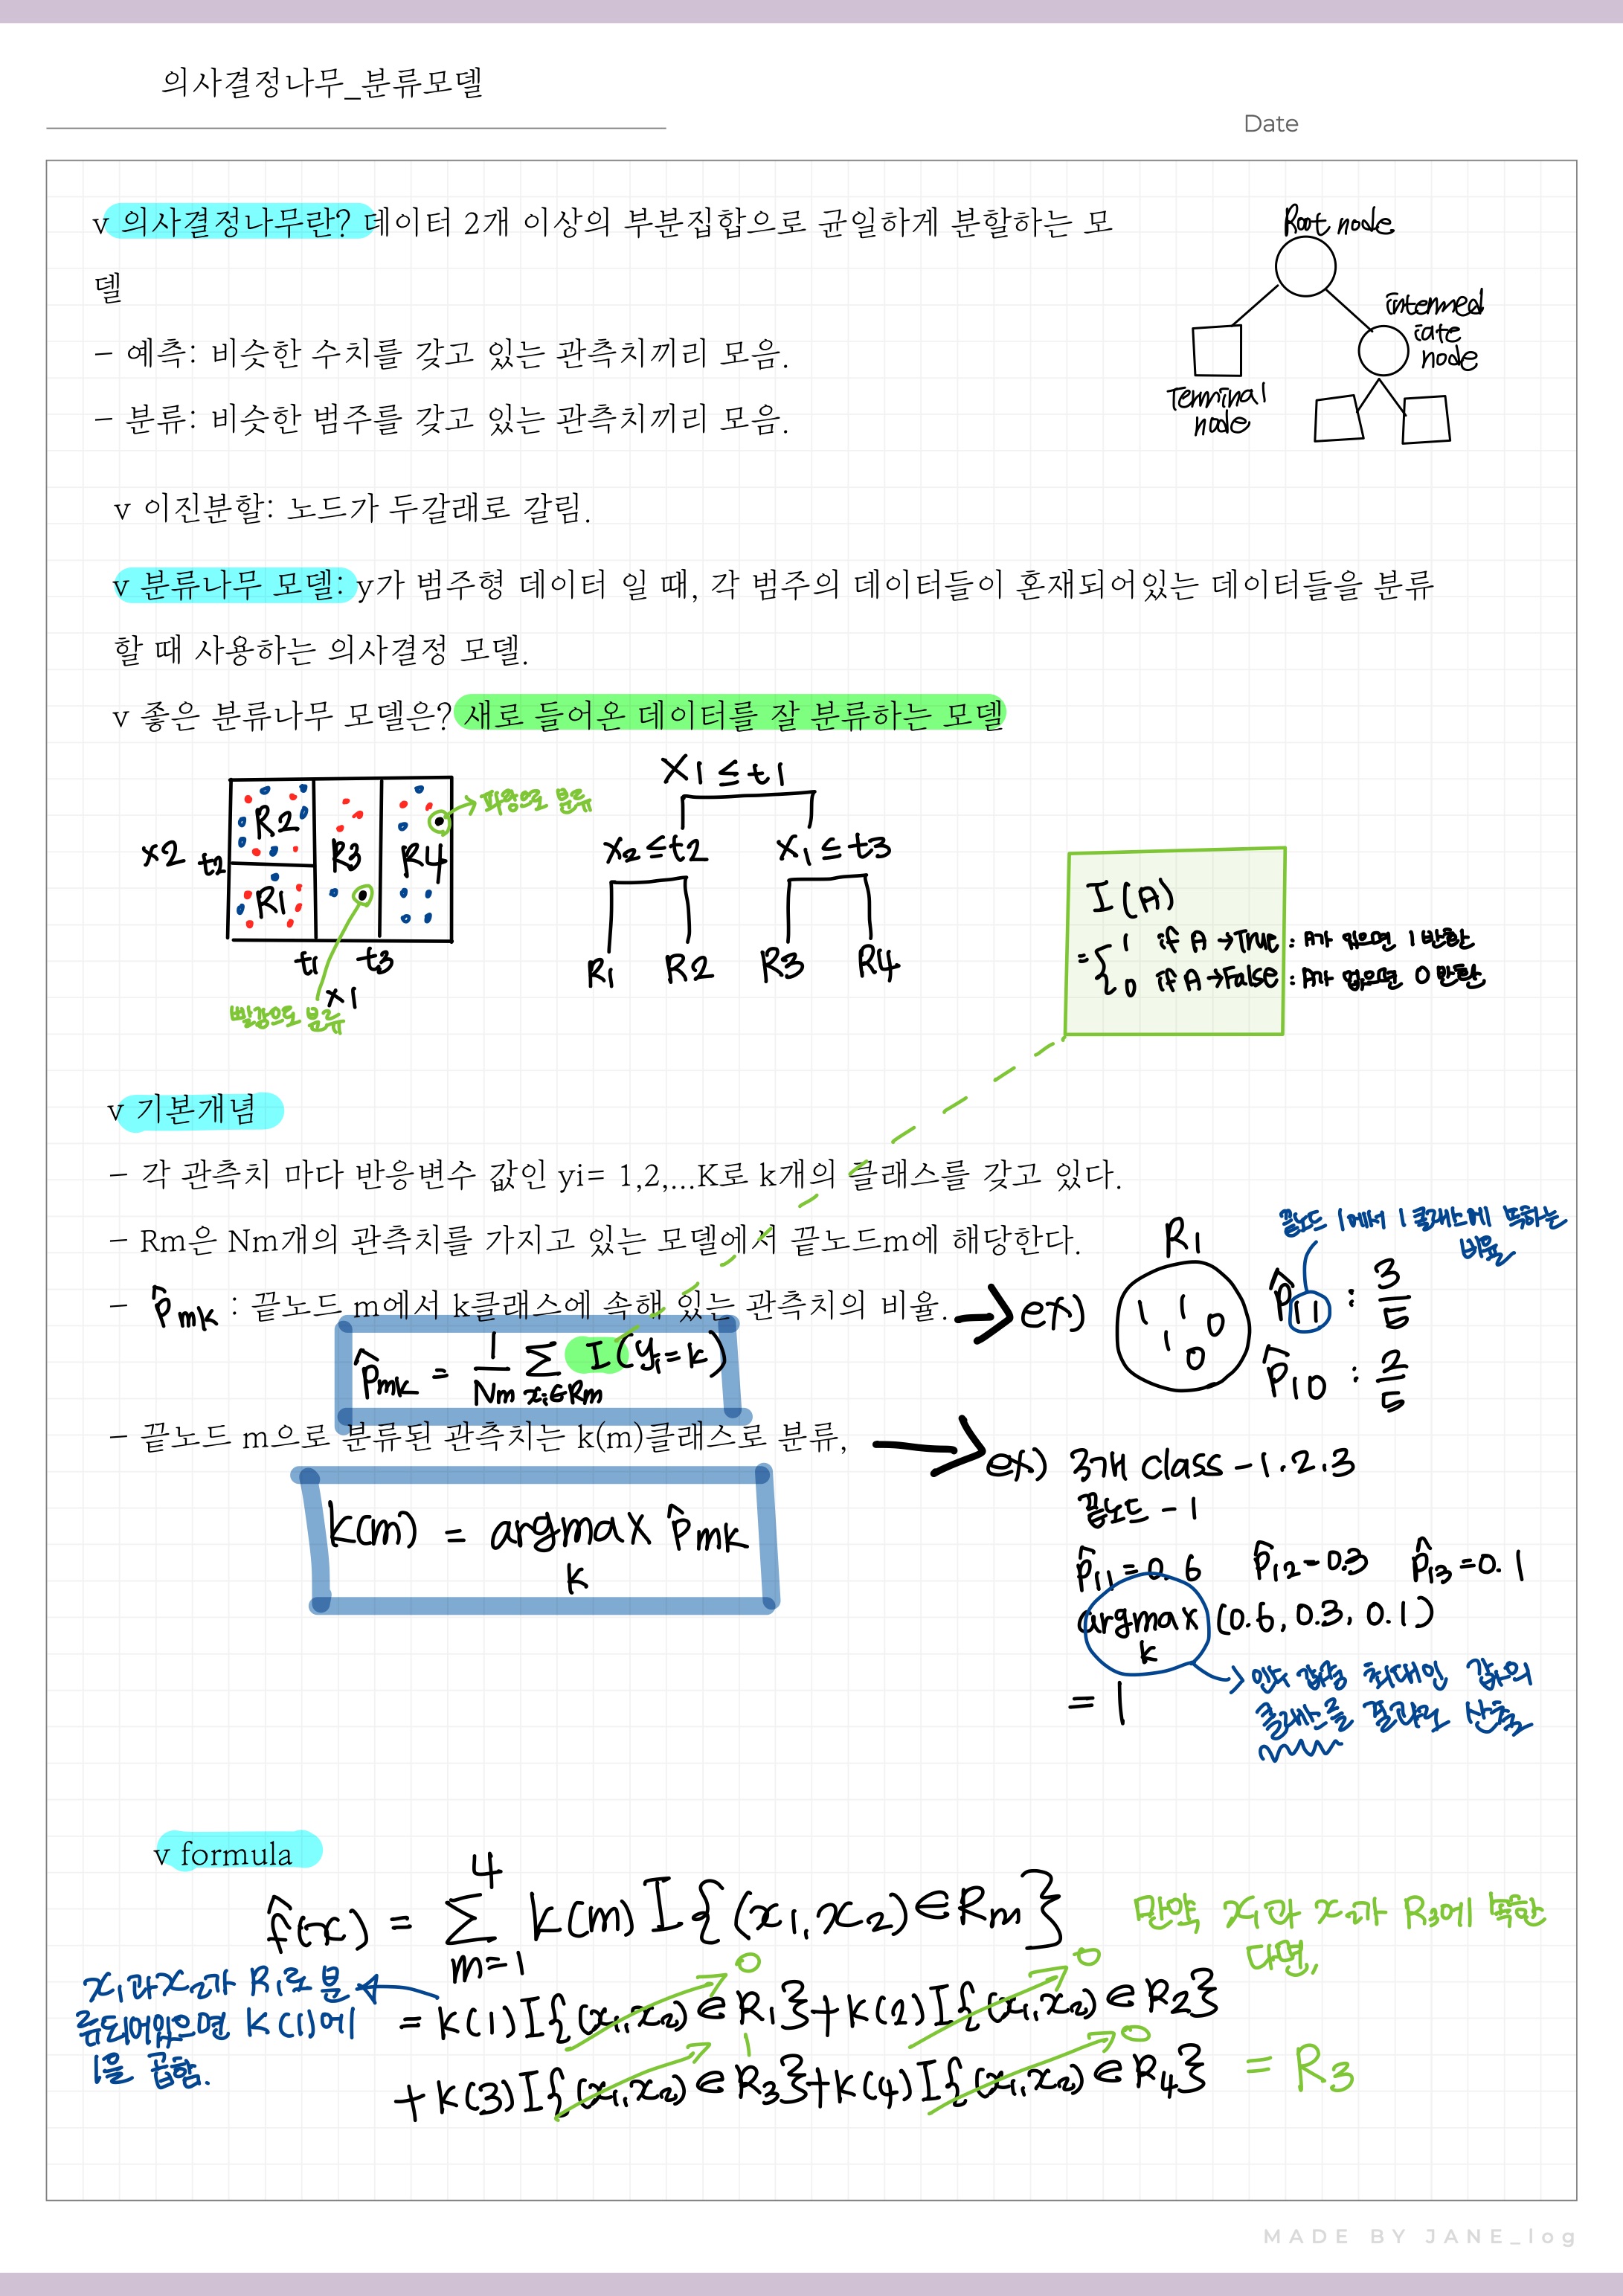 의사결정나무_분류모델
Date
v 의사결정나무란? 데이터 2개 이상의 부분집합으로 균일하게 분할하는 모
델
- 예측: 비슷한 수치를 갖고 있는 관측치끼리 모음.
- 분류: 비슷한 범주를 갖고 있는 관측치끼리 모음.
Root node
intermed
iate
node
Terminal
node
v 이진분할: 노드가 두갈래로 갈림.
v 분류나무 모델: y가 범주형 데이터 일 때, 각 범주의 데이터들이 혼재되어있는 데이터들을 분류
할 때 사용하는 의사결정 모델.
v 좋은 분류나무 모델은? 새로 들어온 데이터를 잘 분류하는 모델
R2 R3 R4
R1
x2 t2
t1 t3
x1
파랑으로 분류
빨강으로 분류
X1 ≤ t1
X2 ≤ t2 X1 ≤ t3
R1 R2 R3 R4
I(A)
= { 1 if A → True : A가 있으면 1 반환
0 if A → False : A가 없으면 0 반환
v 기본개념
- 각 관측치 마다 반응변수 값인 yi= 1,2,...K로 k개의 클래스를 갖고 있다.
- Rm은 Nm개의 관측치를 가지고 있는 모델에서 끝노드m에 해당한다.
- p̂mk : 끝노드 m에서 k클래스에 속해 있는 관측치의 비율.
p̂mk = 1/Nm Σ xi∈Rm I(yi=k)
→ ex)
R1
1 1 0
1 0
끝노드 1에서 1 클래스에 속하는
비율
p̂11 : 3/5
p̂10 : 2/5
- 끝노드 m으로 분류된 관측치는 k(m)클래스로 분류,
k(m) = argmax p̂mk
k
→ ex) 3개 class - 1.2.3
끝노드 - 1
p̂11 = 0.6 p̂12 = 0.3 p̂13 = 0.1
argmax (0.6, 0.3, 0.1)
k
= 1
→ 인수 값중 최대인 값의
클래스를 결과로 산출
v formula
f̂(x) = Σ k(m) I{(x1, x2) ∈ Rm}
4
m=1
만약, x1과 x2가 R3에 속한
다면,
x1과 x2가 R1로 분
류되어있으면 k(1)에
1을 곱함.
= k(1) I{(x1, x2) ∈ R1} + k(2) I{(x1, x2) ∈ R2}
0 0
+ k(3) I{(x1, x2) ∈ R3} + k(4) I{(x1, x2) ∈ R4} = R3
1 0
MADE BY JANE_log